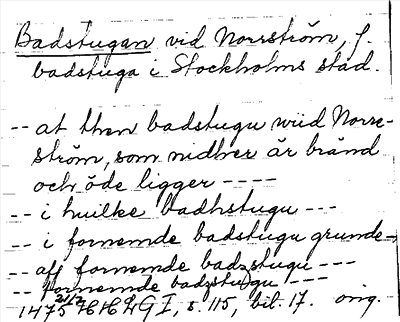 Badstugan vid Norrström, f
badstuga i Stockholms stad.
-- at then badstugu wiid Norre-
ström, som nidher är bränd
och öde ligger ----
-- i huilke badhstugu ---
-- i fornemde badstugu grunde--
-- aff fornemde badzstugu ---
-- fornemde badzstugu ---
1475 21/2 HHLG I, s. 115, bil. 17. orig.